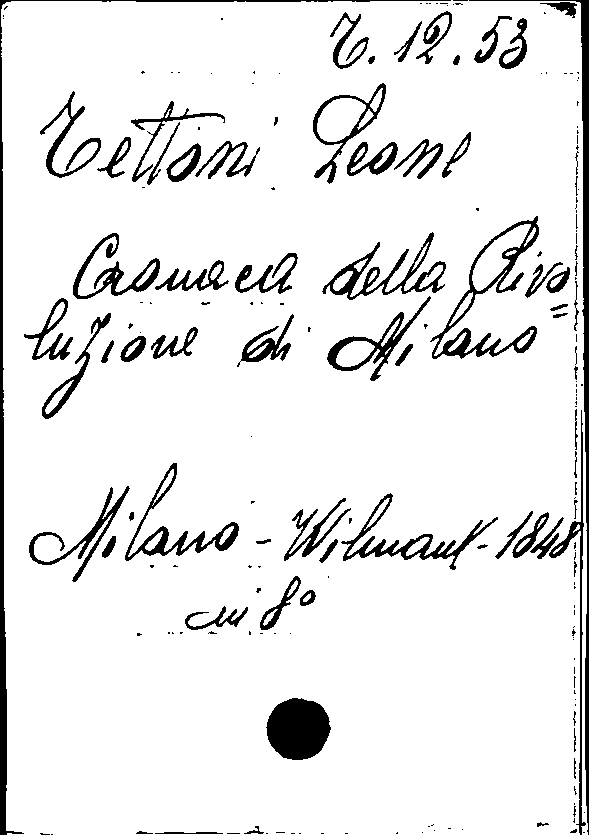 T. 12. 53
Tettoni Leone
Cronaca della Rivo=
luzione di Milano
Milano - Wilmant - 1848
in 8°